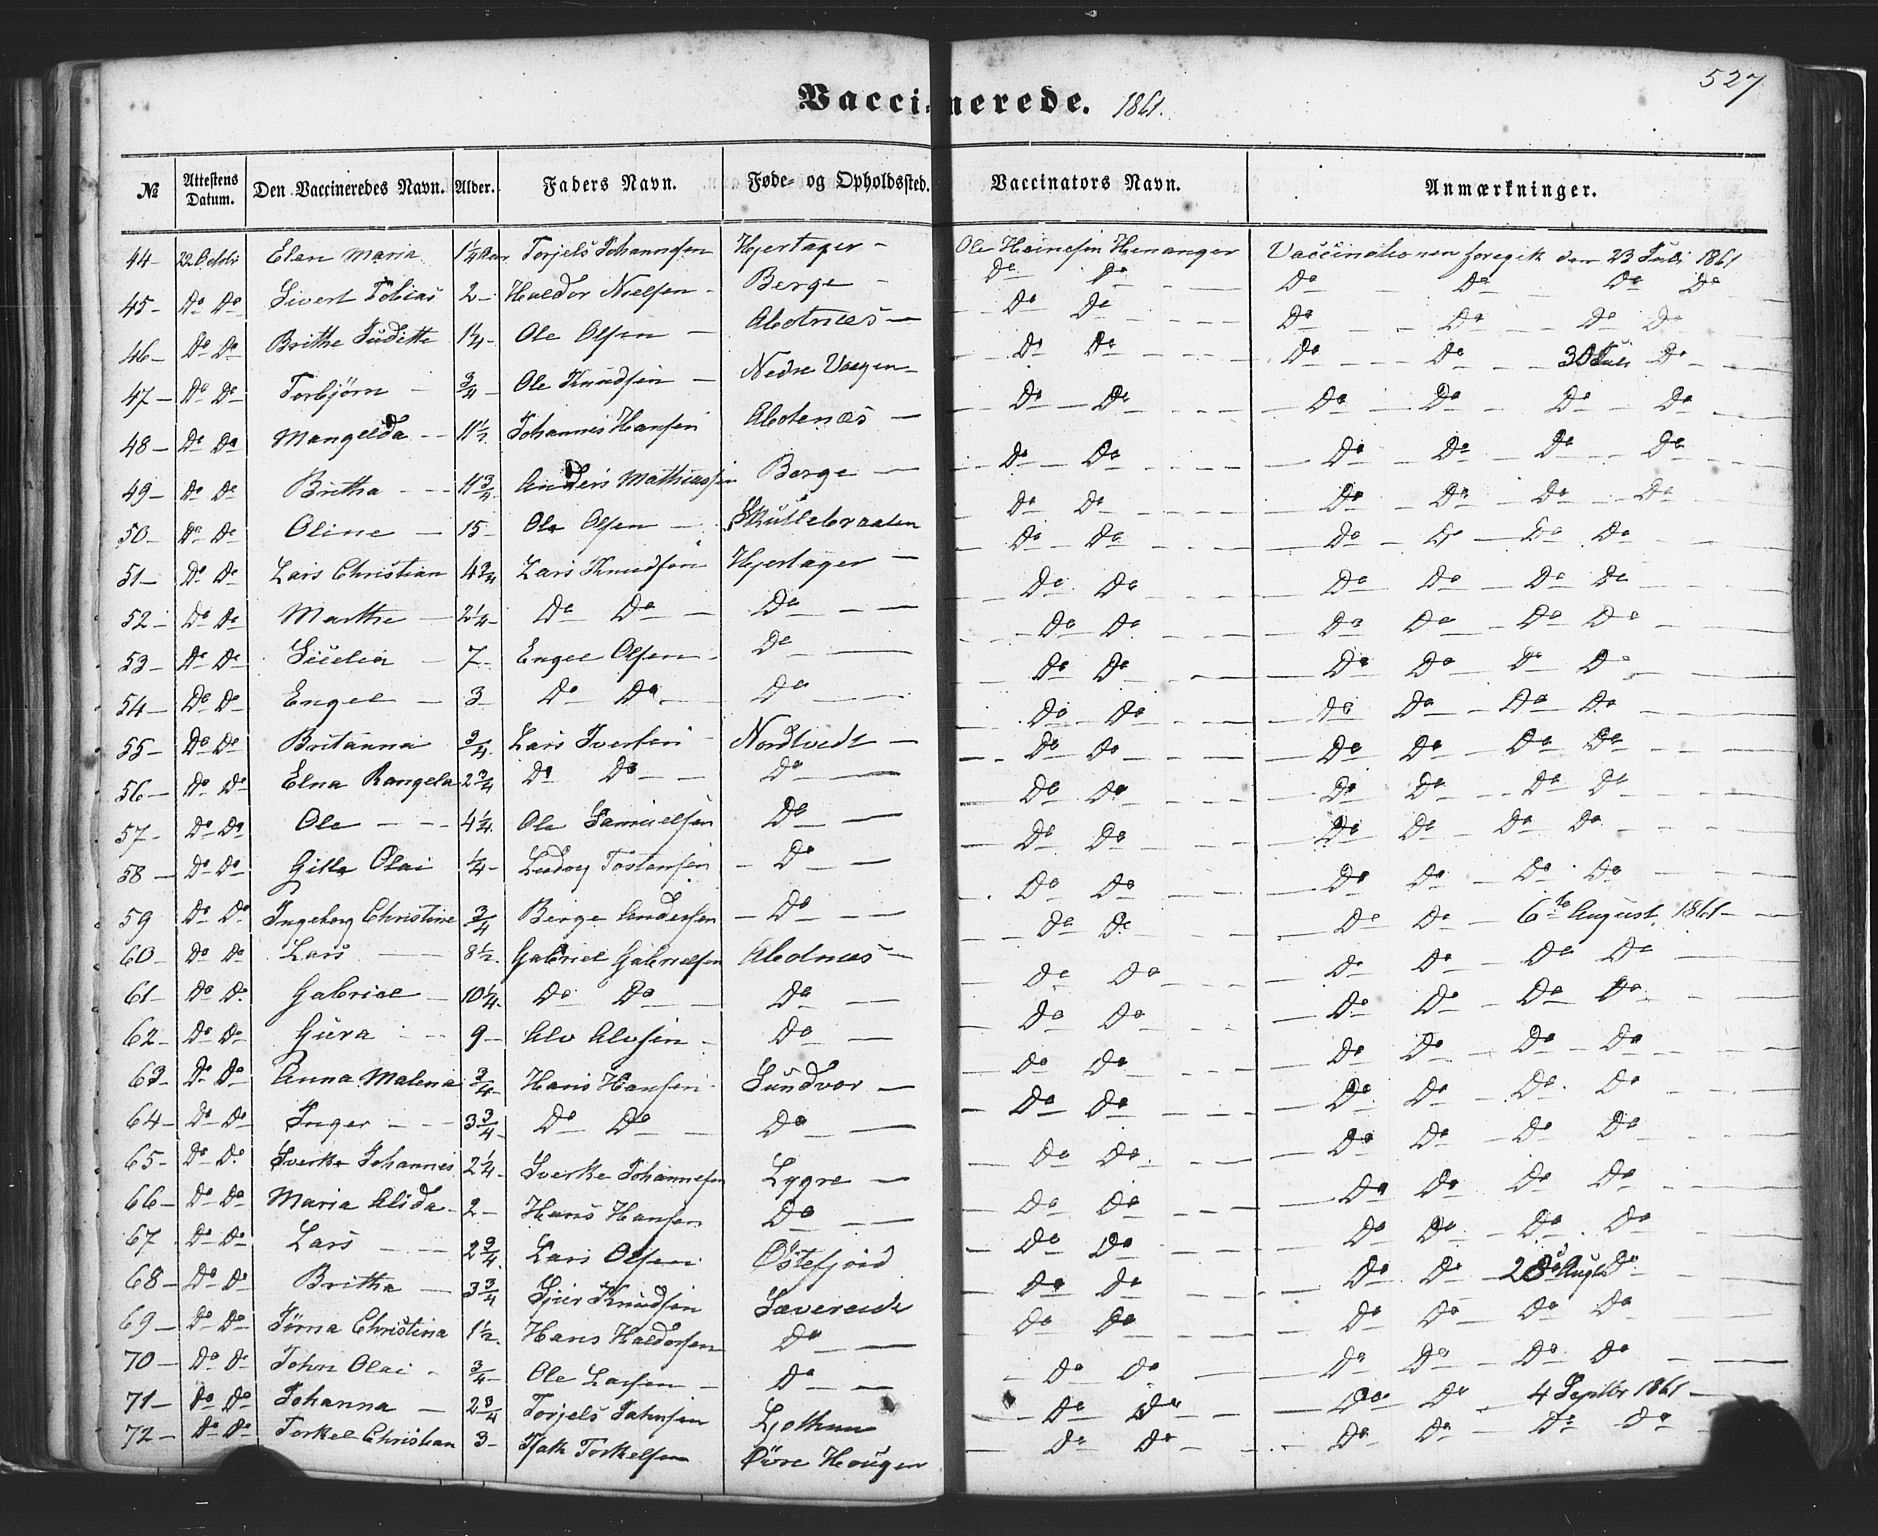 527
Vaccinerede. 1861.
№ Attestens Datum. Den Vaccineredes Navn. Alder. Faders Navn. Føde- og Opholdssted. Vaccinators Navn. Anmærkninger.
44 - 22 Octbr Elen Maria 1¼ Aar Torjels Johannesen Hjertager - Ole Heinesen Henanger Vaccinationen foregik den 23 Juli 1861
45 - Do Do Sivert Tobias 2 - Haldor Nielsen - Berge - Do Do Do Do Do Do
46 - Do Do Brithe Juditte 1¼ - Ole Olsen - Alvotnæs - Do Do Do Do Do Do
47 - Do Do Torbjørn - ¾ - Ole Knudsen - Nedre Vaagen - Do Do Do Do 30 Juli Do
48 - Do Do Mangelda - 11½ Johannes Hansen Do Do Do Do Do Do
49 - Do Do Britha - 11¾ Anders Mathiassen Berge - Do Do Do Do Do Do
50 - Do Do Oline - 15 - Ole Olsen - Skullebraaten Do Do Do Do Do Do
51 - Do Do Lars Christian 4¾ Lars Knudsen Hjertager - Do Do Do Do Do Do
52 - Do Do Marthe - 2¼ - Do Do - Do - Do Do Do Do Do Do
53 - Do Do Sicelia - 7 - Engel Olsen - Do - Do Do Do Do Do Do
54 - Do Do Engel - 3 - Do Do - Do - Do Do Do Do Do Do
55 - Do Do Britanna ¾ Lars Iversen - Nordtvedt - Do Do Do Do Do Do
56 - Do Do Elna Rangela 2¾ Do Do - Do - Do Do Do Do Do Do
57 - Do Do Ole - 4¼ Ole Samuelsen Do - Do Do Do Do Do Do
58 - Do Do Gitle Olai ¼ - Ludvig Tostensen - Do - Do Do Do Do Do Do
59 Do Do Ingeborg Christine ¾ Berge Andersen - Do - Do Do Do Do Do Do
60 - Do Do Lars - 8½ Gabriel Gabrielsen Do Do Do Do 6te August 1861 -
61 - Do Do Gabriel - 10¼ Do Do - Do - Do Do Do Do Do Do
62 - Do Do Gura - 9 - Alv Alvsen - Do - Do Do Do Do Do Do
63 - Do Do Anna Malena ¾ - Hans Hansen - Sundvor - Do Do Do Do Do Do
64 - Do Do Inger - 3¾ Do Do - Do - Do Do Do Do Do Do
65 - Do Do Sverke Johannes 2¼ Sverke Johannesen Lygre - Do Do Do Do Do Do
66 - Do Do Maria Alida - 2 - Hans Hansen Do - Do Do Do Do Do Do
67 - Do Do Lars - 2¾ Lars Olsen Østefjord Do Do Do Do Do Do
68 - Do Do Britha - 3¾ Knudsen Sævereide Do Do Do Do 28 Aug Do
69 - Do Do Jørna Christina 1½ Hans Haldorsen Do - Do Do Do Do Do Do
70 - Do Do John Olai - ¾ - Ole Larsen - Do - Do Do Do Do Do Do
71 - Do Do Johanna - 2¾ Torjels Johnsen Do Do Do Do 4 Septbr 1861 -
72 - Do Do Torkel Christian 3 - Torkelsen Øvre Hougen Do Do Do Do Do Do